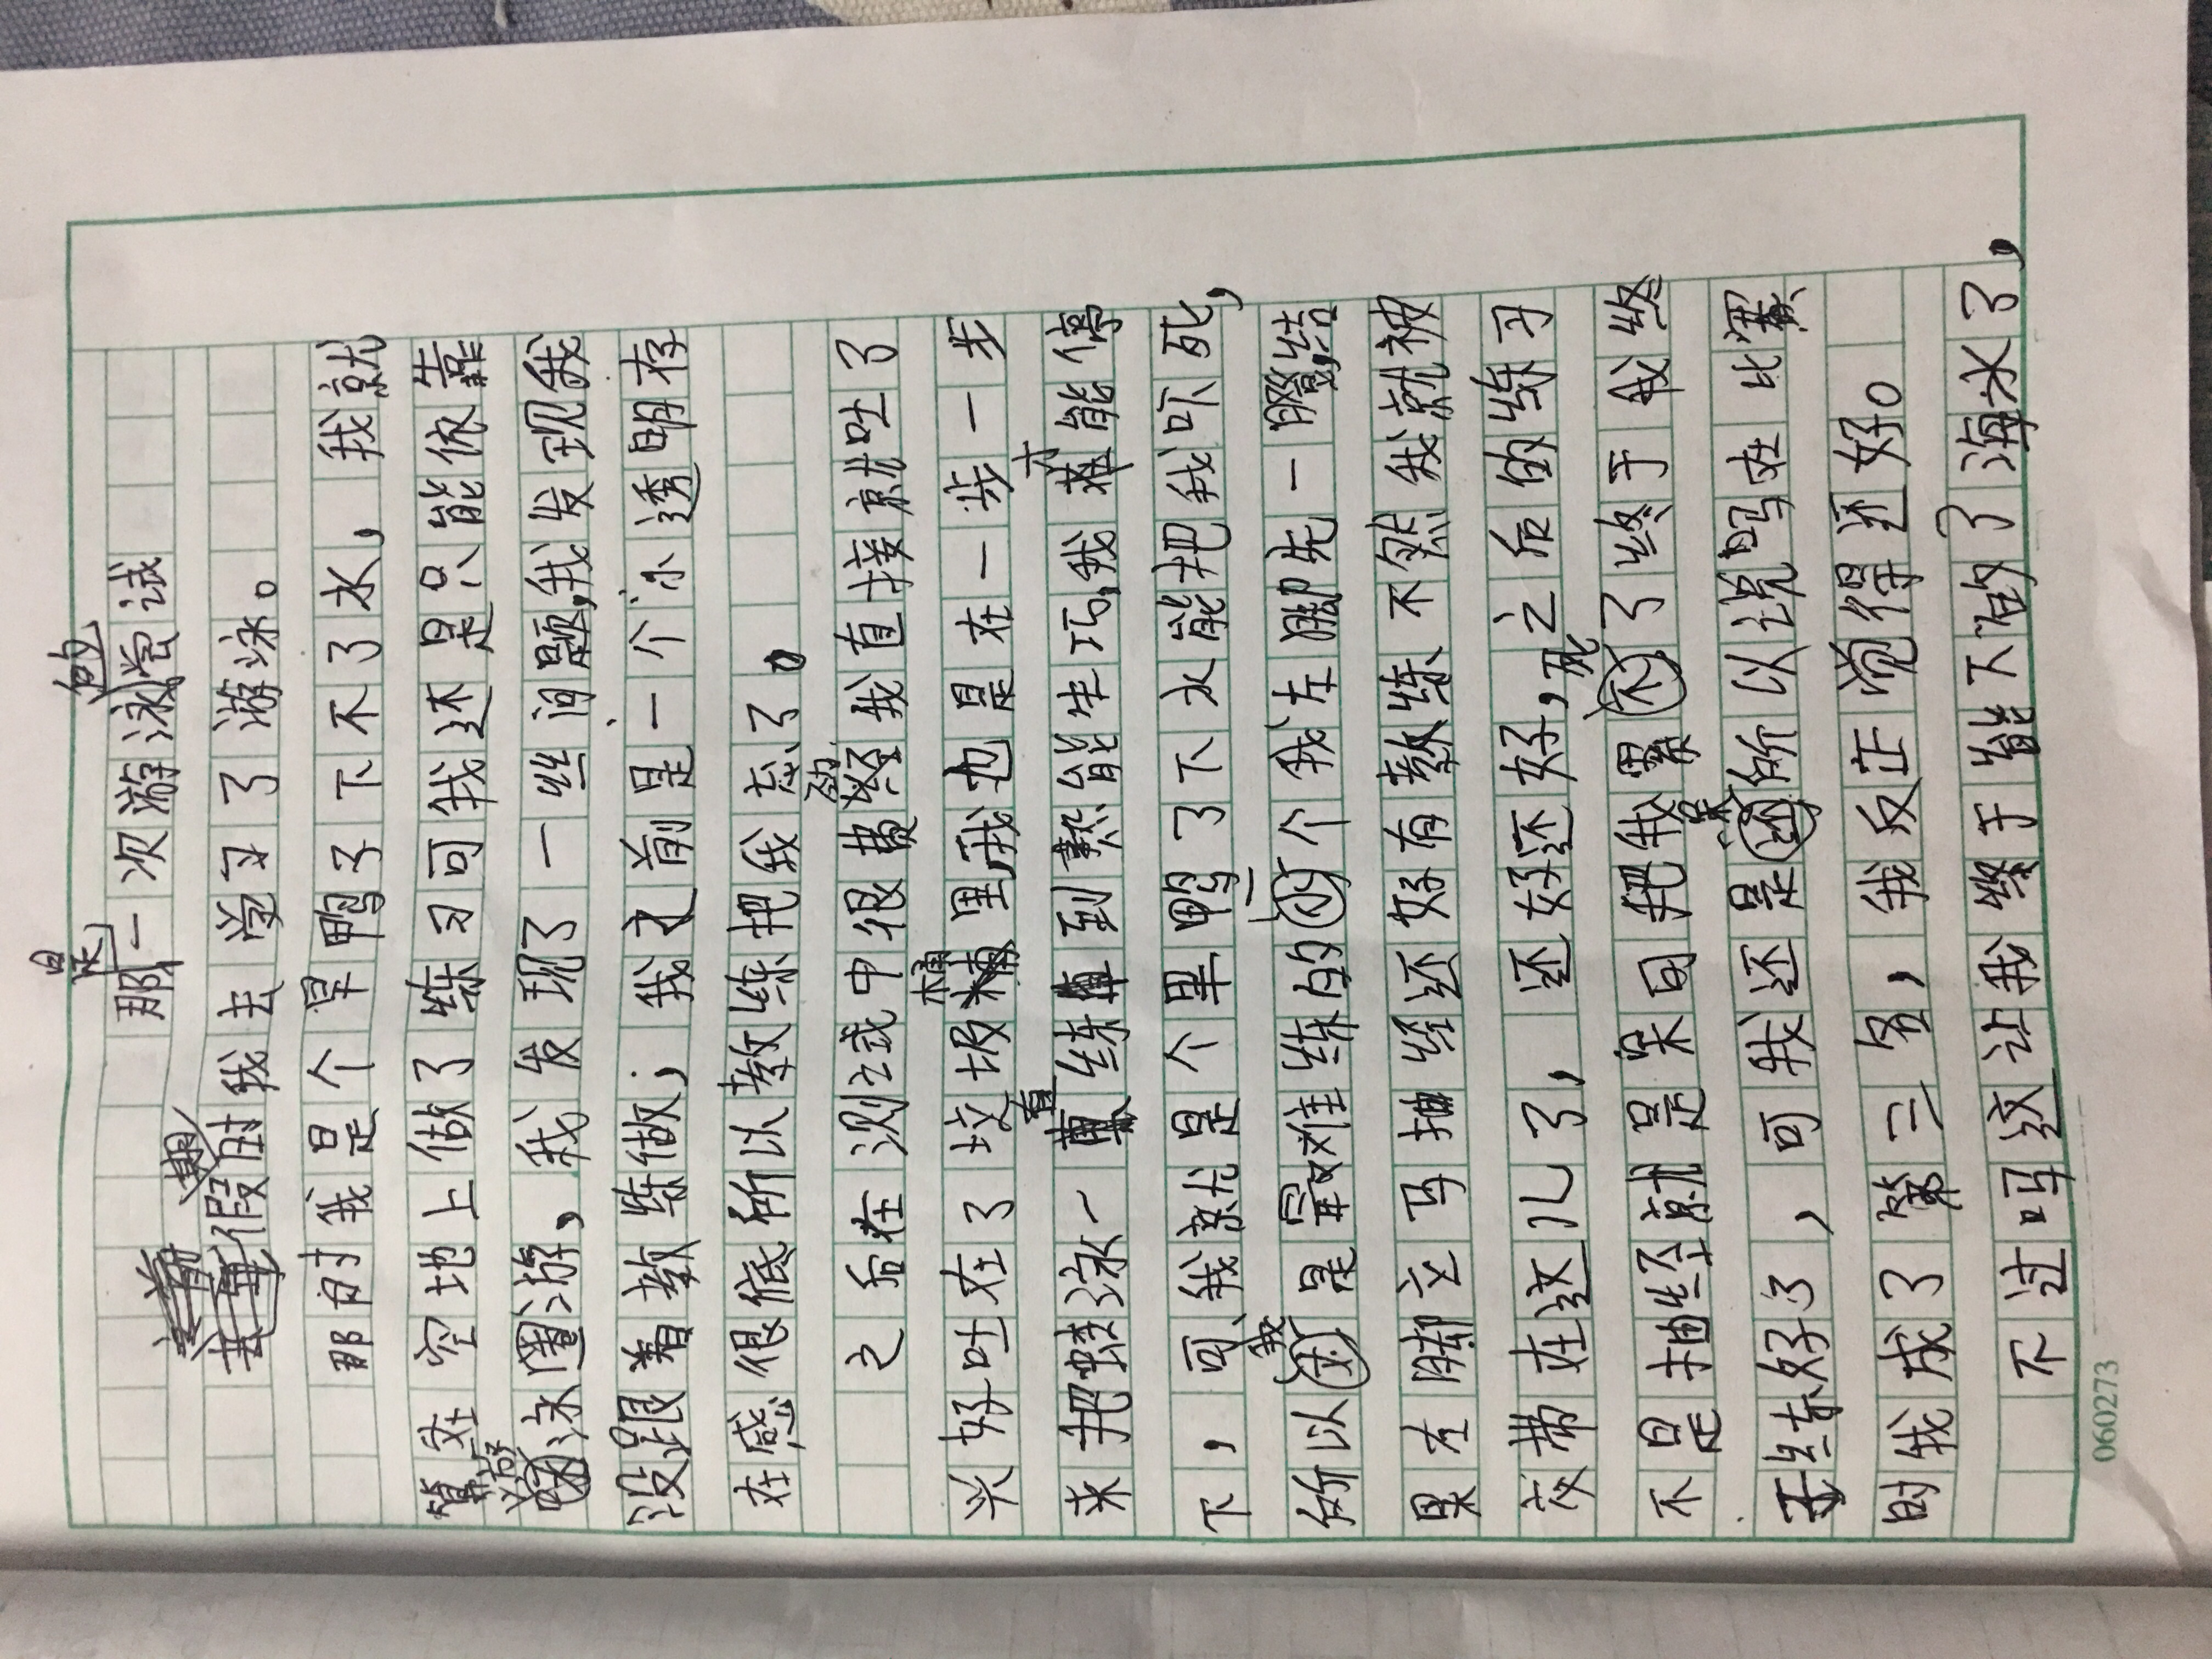 那是一次游泳的尝试
暑假时我去学习了游泳。
那时我是个旱鸭子下不了水，我就
算在空地上做了练习可我还是只能依靠
游泳圈游，我发现了一丝问题，我发现我
没跟着教练做；我之前是一个小透明存
在感很低所以教练把我忘了。
之后在测试中很费劲我直接就吐了
兴好吐在了垃圾桶里，我也是在一步一步
来把蛙泳一直练到熟能生巧，我才能停
下，可我就是个旱鸭子下水能把我吓死，
所以我是最难练的个我左脚先一蹬，结
果右脚立马抽经还好有教练不然我就被
交带在这儿了，还好还好，之后的练习
不是抽经就是呆可把我累死了终于我终
练好了，可我还是呆所以说吗在比赛
时我成了第三名，我反正觉得还好。
不过吗这让我终于能下的了海水了，
060273